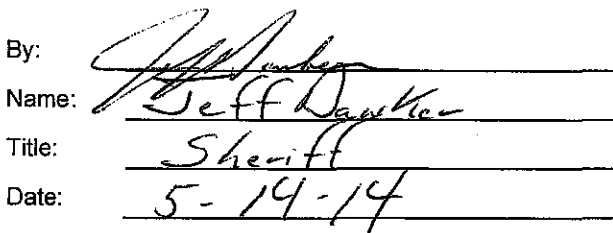 By:
Name: Jeff
Title: Sheriff
Date: 5-14-14